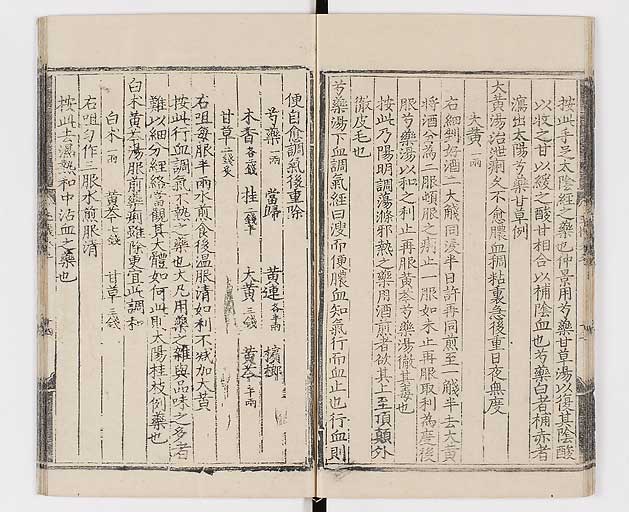 按此手足太陰經之藥也仲景用芍藥甘草湯以復其陰酸
以收之甘以緩之酸甘相合以補陰血也芍藥白者補赤者
瀉出太陽芍藥甘草例
大黃湯治泄痢久不愈膿血稠粘裏急後重日夜無度
大黃一兩
右細剉好酒二大觥同浸半日許再同煎至一觥半去大黃
將酒分為二服頓服之痢止一服如未止再服取利為度後
服芍藥湯以和之利止再服黃芩芍藥湯徹其毒也
按此乃陽明調蕩滌邪熱之藥用酒煎者欲其上至頂顛外
徹皮毛也
芍藥湯下血調氣經曰溲而便膿血知氣行而血止也行血則
便自愈調氣後重除
芍藥一兩 當歸 黃連各半兩 檳榔
木香各二錢 桂二錢半 大黃三錢 黃芩半兩
甘草二錢炙
右咀每服半兩水煎食後溫服清如利不減加大黃
按此行血調氣不熱之藥也大凡用藥之雜與品味之多者
難以細分經絡當觀其大體如何此則太陽桂枝例藥也
白朮黃芩湯服前藥痢雖除更宜此調和
白朮一兩 黃芩七錢 甘草三錢
右咀勻作三服水煎服清
按此去濕熱和中治血之藥也